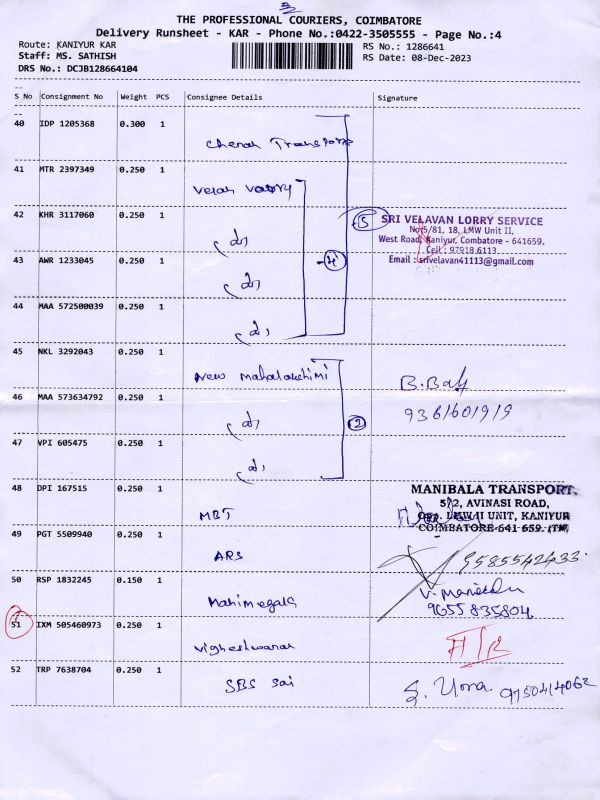 THE PROFESSIONAL COURIERS, COIMBATORE
Delivery Runsheet - KAR - Phone No.:0422-3505555 - Page No.:4
Route: KANIYUR KAR
RS No.: 1286641
Staff: MS. SATHISH
RS Date: 08-Dec-2023
DRS No.: DCJB128664104
S No Consignment No Weight PCS Consignee Details Signature
40 IDP 1205368 0.300 1
Cheran Transport
41 MTR 2397349 0.250 1
42 KHR 3117060 0.250 1
5 SRI VELAVAN LORRY SERVICE
No:5/81, 18, LMW Unit II,
West Road, Kaniyur, Combatore - 641659.
Cell : 97918 6113
Email : srivelavan41113@gmail.com
43 AWR 1233045 0.250 1
4
44 MAA 572500039 0.250 1
45 NKL 3292043 0.250 1
New Mahalakshimi
46 MAA 573634792 0.250 1
9361601919
2
47 VPI 605475 0.250 1
48 DPI 167515 0.250 1
MBT
MANIBALA TRANSPORT,
5/2, AVINASI ROAD,
Opp. LMW II UNIT, KANIYUR
COIMBATORE-641 659. (TN)
49 PGT 5509940 0.250 1
ARS
9585542433
50 RSP 1832245 0.150 1
Mahimegala
9655835804
51 IXM 505460973 0.250 1
Vigheshwarar
52 TRP 7638704 0.250 1
SBS Sai
S. Uma 9750414062